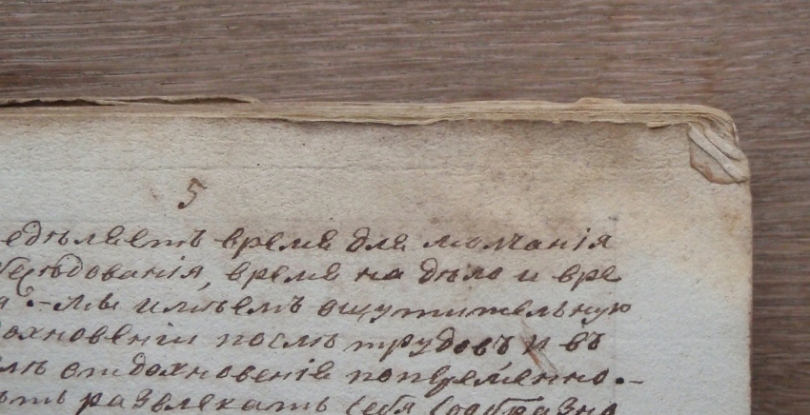 5
едѣляетъ время для молчанія
бесѣдованія, время на дѣло и вре
я. - мы имѣемъ ощутительную
дохновеніи послѣ трудовъ и въ
отдохновеніе поперемѣнно. -
ть развлекать себя сообразно